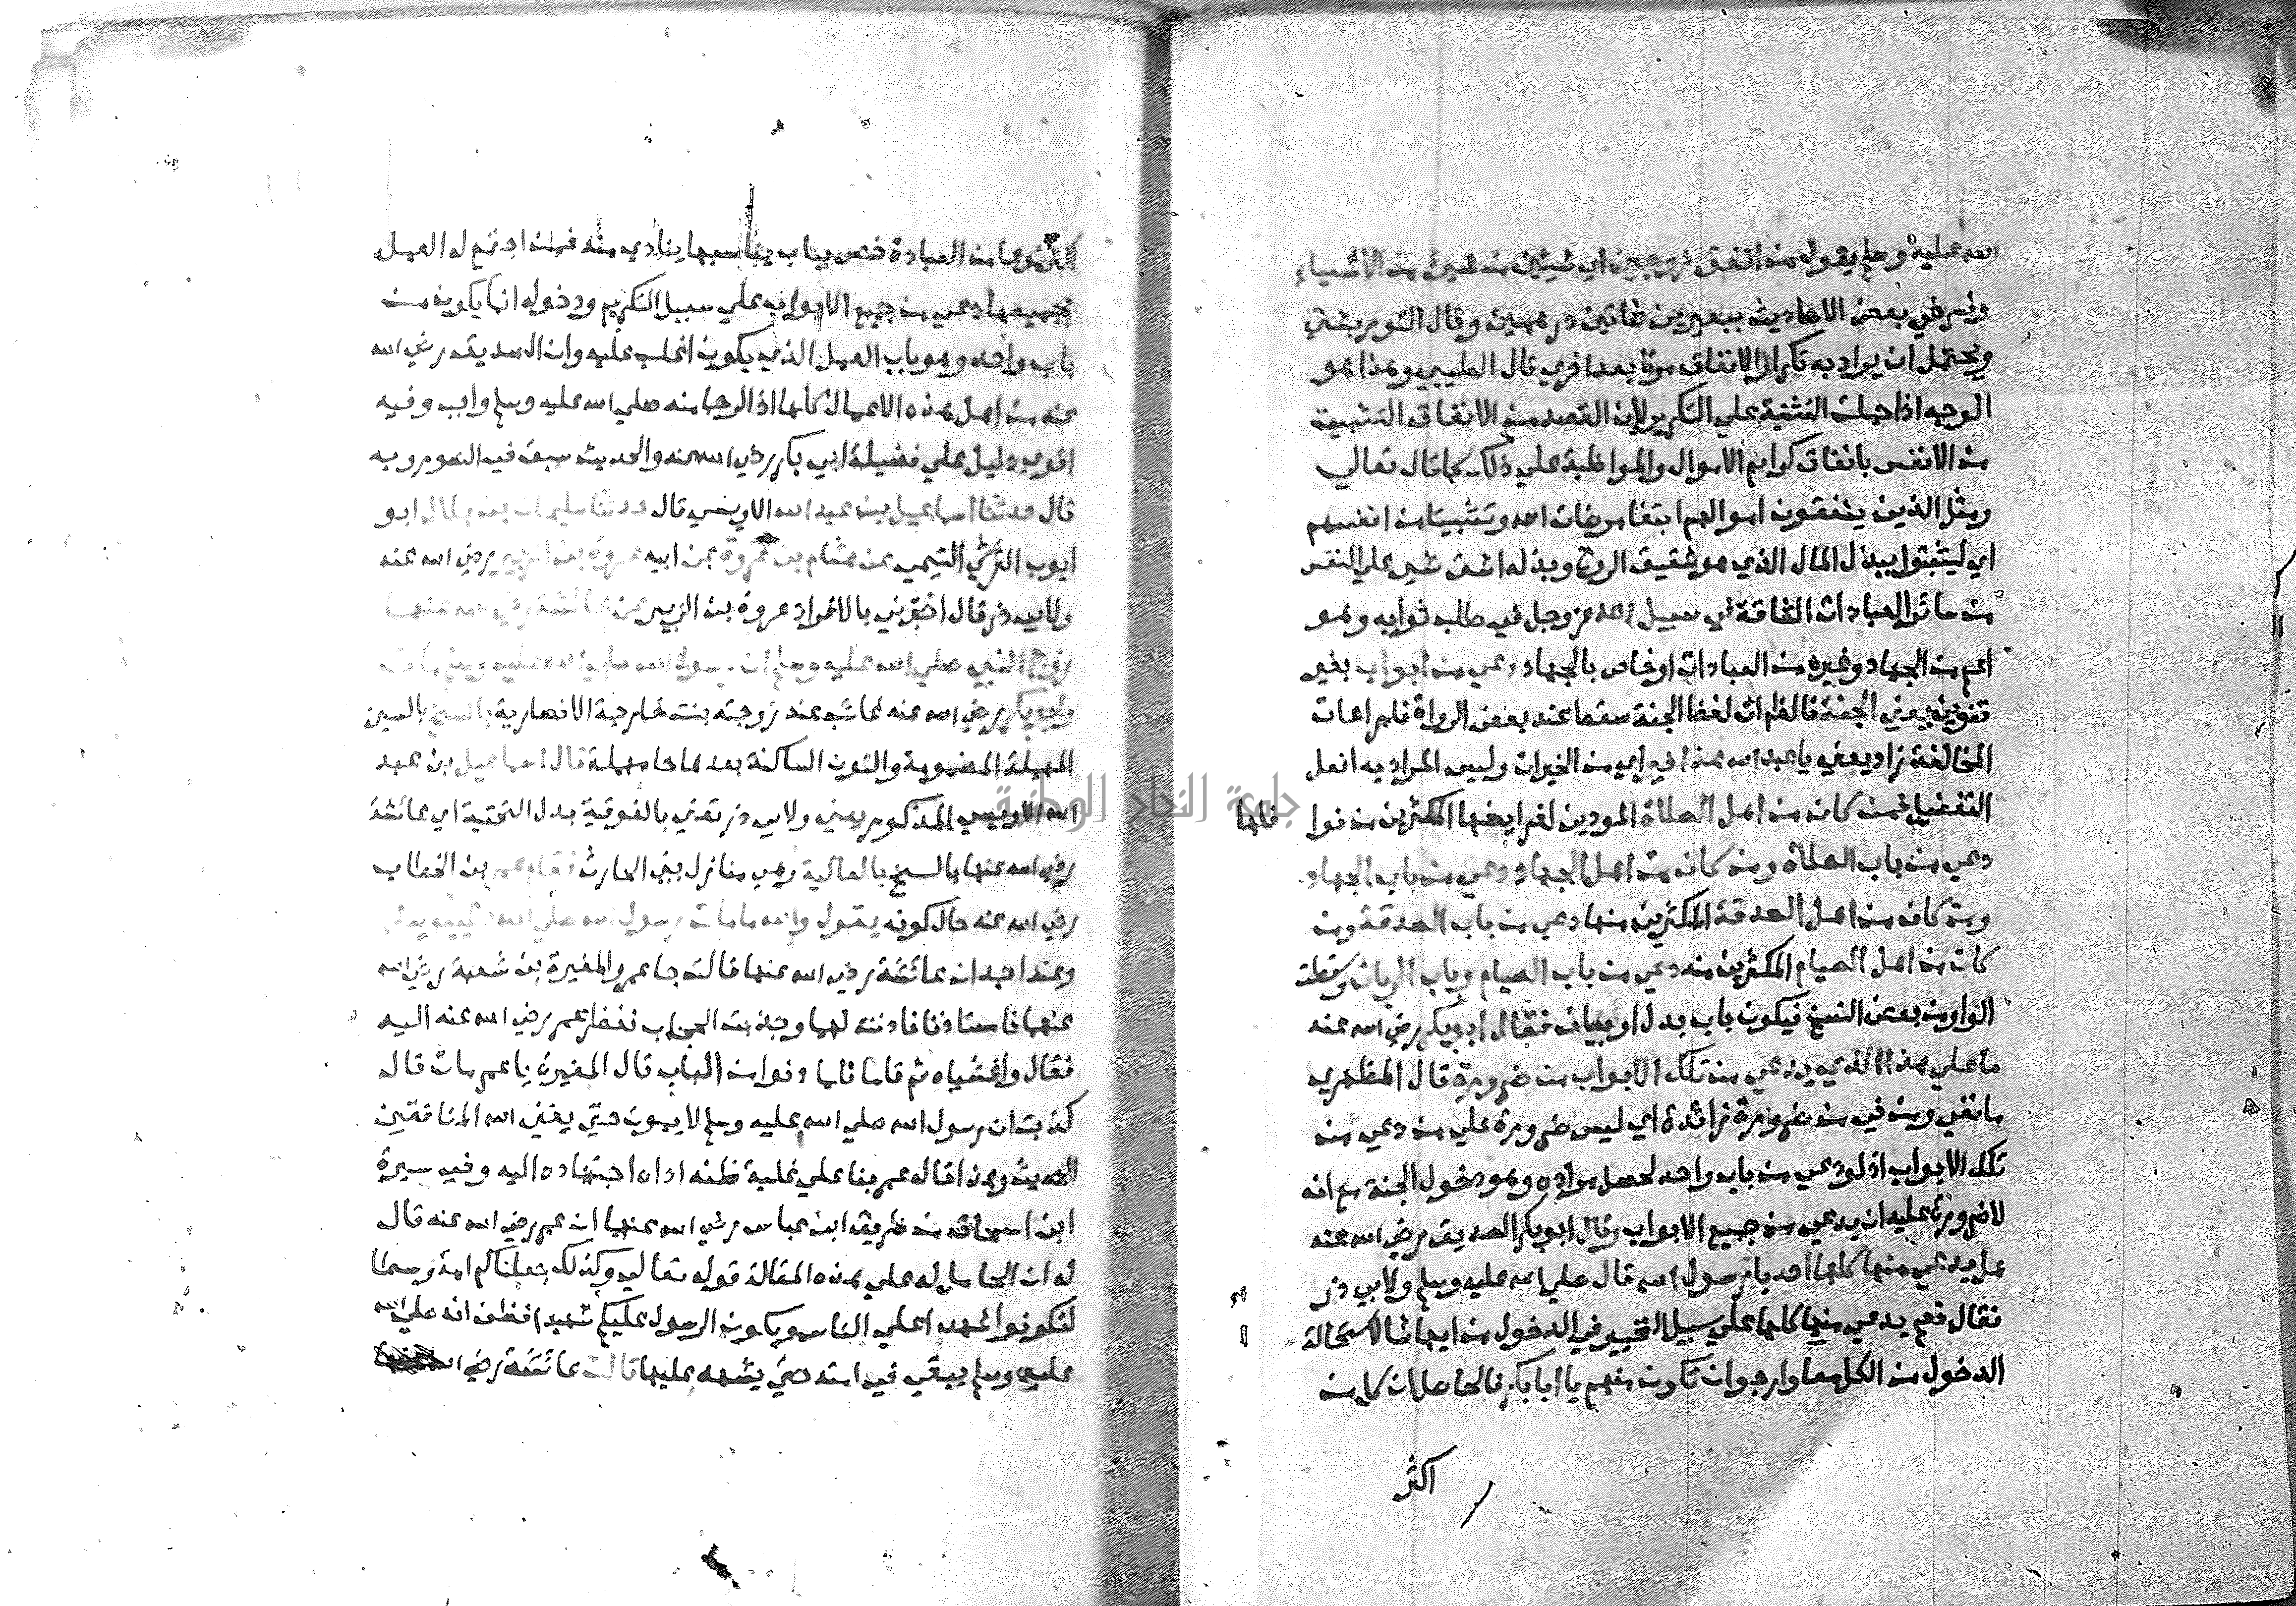 الله عليه وسلم يقول من انفق زوجين اي شيئين من شيئ من الاشياء
وفسر في بعض الاحاديث ببعيرين شاتين درهمين وقال التوربشتي
ويحتمل ان يراد به تكرار الانفاق مرة بعد اخري قال الطيبي وهذا هو
الوجه اذا حملت التثنية علي التكرير لان القصد من الانفاق التثبيت
من الانفس بانفاق كرايم الاموال والمواظبة علي ذلك كما قال تعالي
ومثل الذين ينفقون اموالهم ابتغا مرضات الله وتثبيتا من انفسهم
اي ليثبتوا ببذل المال الذي هو شقيق الروح وبذله اشق شي علي النفس
من سائر العبادات الشاقة في سبيل الله عز وجل في طلب ثوابه وهو
اعم من الجهاد وغيره من العبادات او خاص بالجهاد دعي من ابواب بغير
تنوين يعني الجنة فالظ ان لفظ الجنة سقط عند بعض الرواة فلمراعات
المخالفة زاد يعني يا عبد الله هذا خير اي من الخيرات وليس المراد به افعل
التفضيل فمن كان من اهل الصلاة المودين لفرايضها المكثرين من نوا فلها
دعي من باب الصلاة ومن كان من اهل الجهاد دعي من باب الجهاد
ومن كان من اهل الصدقة المكثرين منها دعي من باب الصدقة ومن
كان من اهل الصيام المكثرين منه دعي من باب الصيام وباب الريان وسقطت
الواو من بعض النسخ فيكون باب بدل او بيان فقال ابو بكر رضي الله عنه
ما علي هذا الذي يدعي من تلك الابواب من ضرورة قال المظهري
ما نفي ومن في من ضرورة زائدة اي ليس ضرورة علي من دعي من
تلك الابواب اذ لو دعي من باب واحد لحصل مراده وهو دخول الجنة مع انه
لا ضرورة عليه ان يدعي من جميع الابواب وقال ابو بكر الصديق رضي الله عنه
هل يدعي منها كلها احد يا رسول الله قال صلي الله عليه وسلم ولابي ذر
فقال نعم يدعي منها كلها علي سبيل التخيير في الدخول من ايها شا لاستحالة
الدخول من الكل معا وارجوا ان تكون منهم يا ابا بكر فالحاصل ان كل من
اكثر
اكثر نوعا من العبادة خص بباب يناسبها ينادي منه فمن اجتمع له العمل
بجميعها دعي من جميع الابواب علي سبيل التكريم ودخوله انما يكون من
باب واحد وهو باب العمل الذي يكون اغلب عليه وان الصديق رضي الله
عنه من اهل هذه الاعمال كلها اذ الرجا منه صلي الله عليه وسلم واجب وفيه
اقوي دليل علي فضيلة ابي بكر رضي الله عنه والحديث سبق في الصوم وبه
قال حدثنا اسماعيل بن عبد الله الاويسي قال حدثنا سليمان بن بلال ابو
ايوب القرشي التيمي عن هشام بن عروة عن ابيه عروة بن الزبير رضي الله عنه
ولابي ذر قال اخبرني بالافراد عروة بن الزبير عن عائشة رضي الله عنها
زوج النبي صلي الله عليه وسلم ان رسول الله صلي الله عليه وسلم مات
وابو بكر رضي الله عنه غائب عند زوجته بنت خارجة الانصارية بالسنح بالسين
المهملة المضمومة والنون الساكنة بعدها حا مهملة قال اسماعيل بن عبد
الله الاويسي المذكور يعني ولابي ذر تعني بالفوقية بدل التحتية اي عائشة
رضي الله عنها بالسنح بالعالية وهي منازل بني الحارث فقام عمر بن الخطاب
رضي الله عنه حال كونه يقول والله ما مات رسول الله صلي الله عليه وسلم
وعند احمد ان عائشة رضي الله عنها قالت جا عمر والمغيرة بن شعبة رضي الله
عنهما فاستاذنا فاذنت لهما وجذبت الحجاب فنظر عمر رضي الله عنه اليه
فقال واغشياه ثم قاما فلما دنوا من الباب قال المغيرة يا عمر مات قال
كذبت ان رسول الله صلي الله عليه وسلم لا يموت حتي يفني الله المنافقين
الحديث وهذا قاله عمر بنا علي غلبة ظنه اداه اجتهاده اليه وفيه سيرة
ابن اسحاق من طريق ابن عباس رضي الله عنهما ان عمر رضي الله عنه قال
له ان الحامل له علي هذه المقالة قوله تعالي وكذلك جعلناكم امة وسطا
لتكونوا شهدا علي الناس ويكون الرسول عليكم شهيدا فظن انه صلي الله
عليه وسلم يبقي في امته حتي يشهد عليها قالت عائشة رضي الله
جامعة النجاح الوطنية